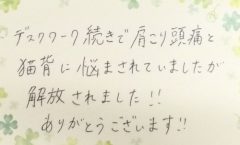 デスクワーク続きで肩こり頭痛と
猫背に悩まされていましたが
解放されました!!
ありがとうございます!!